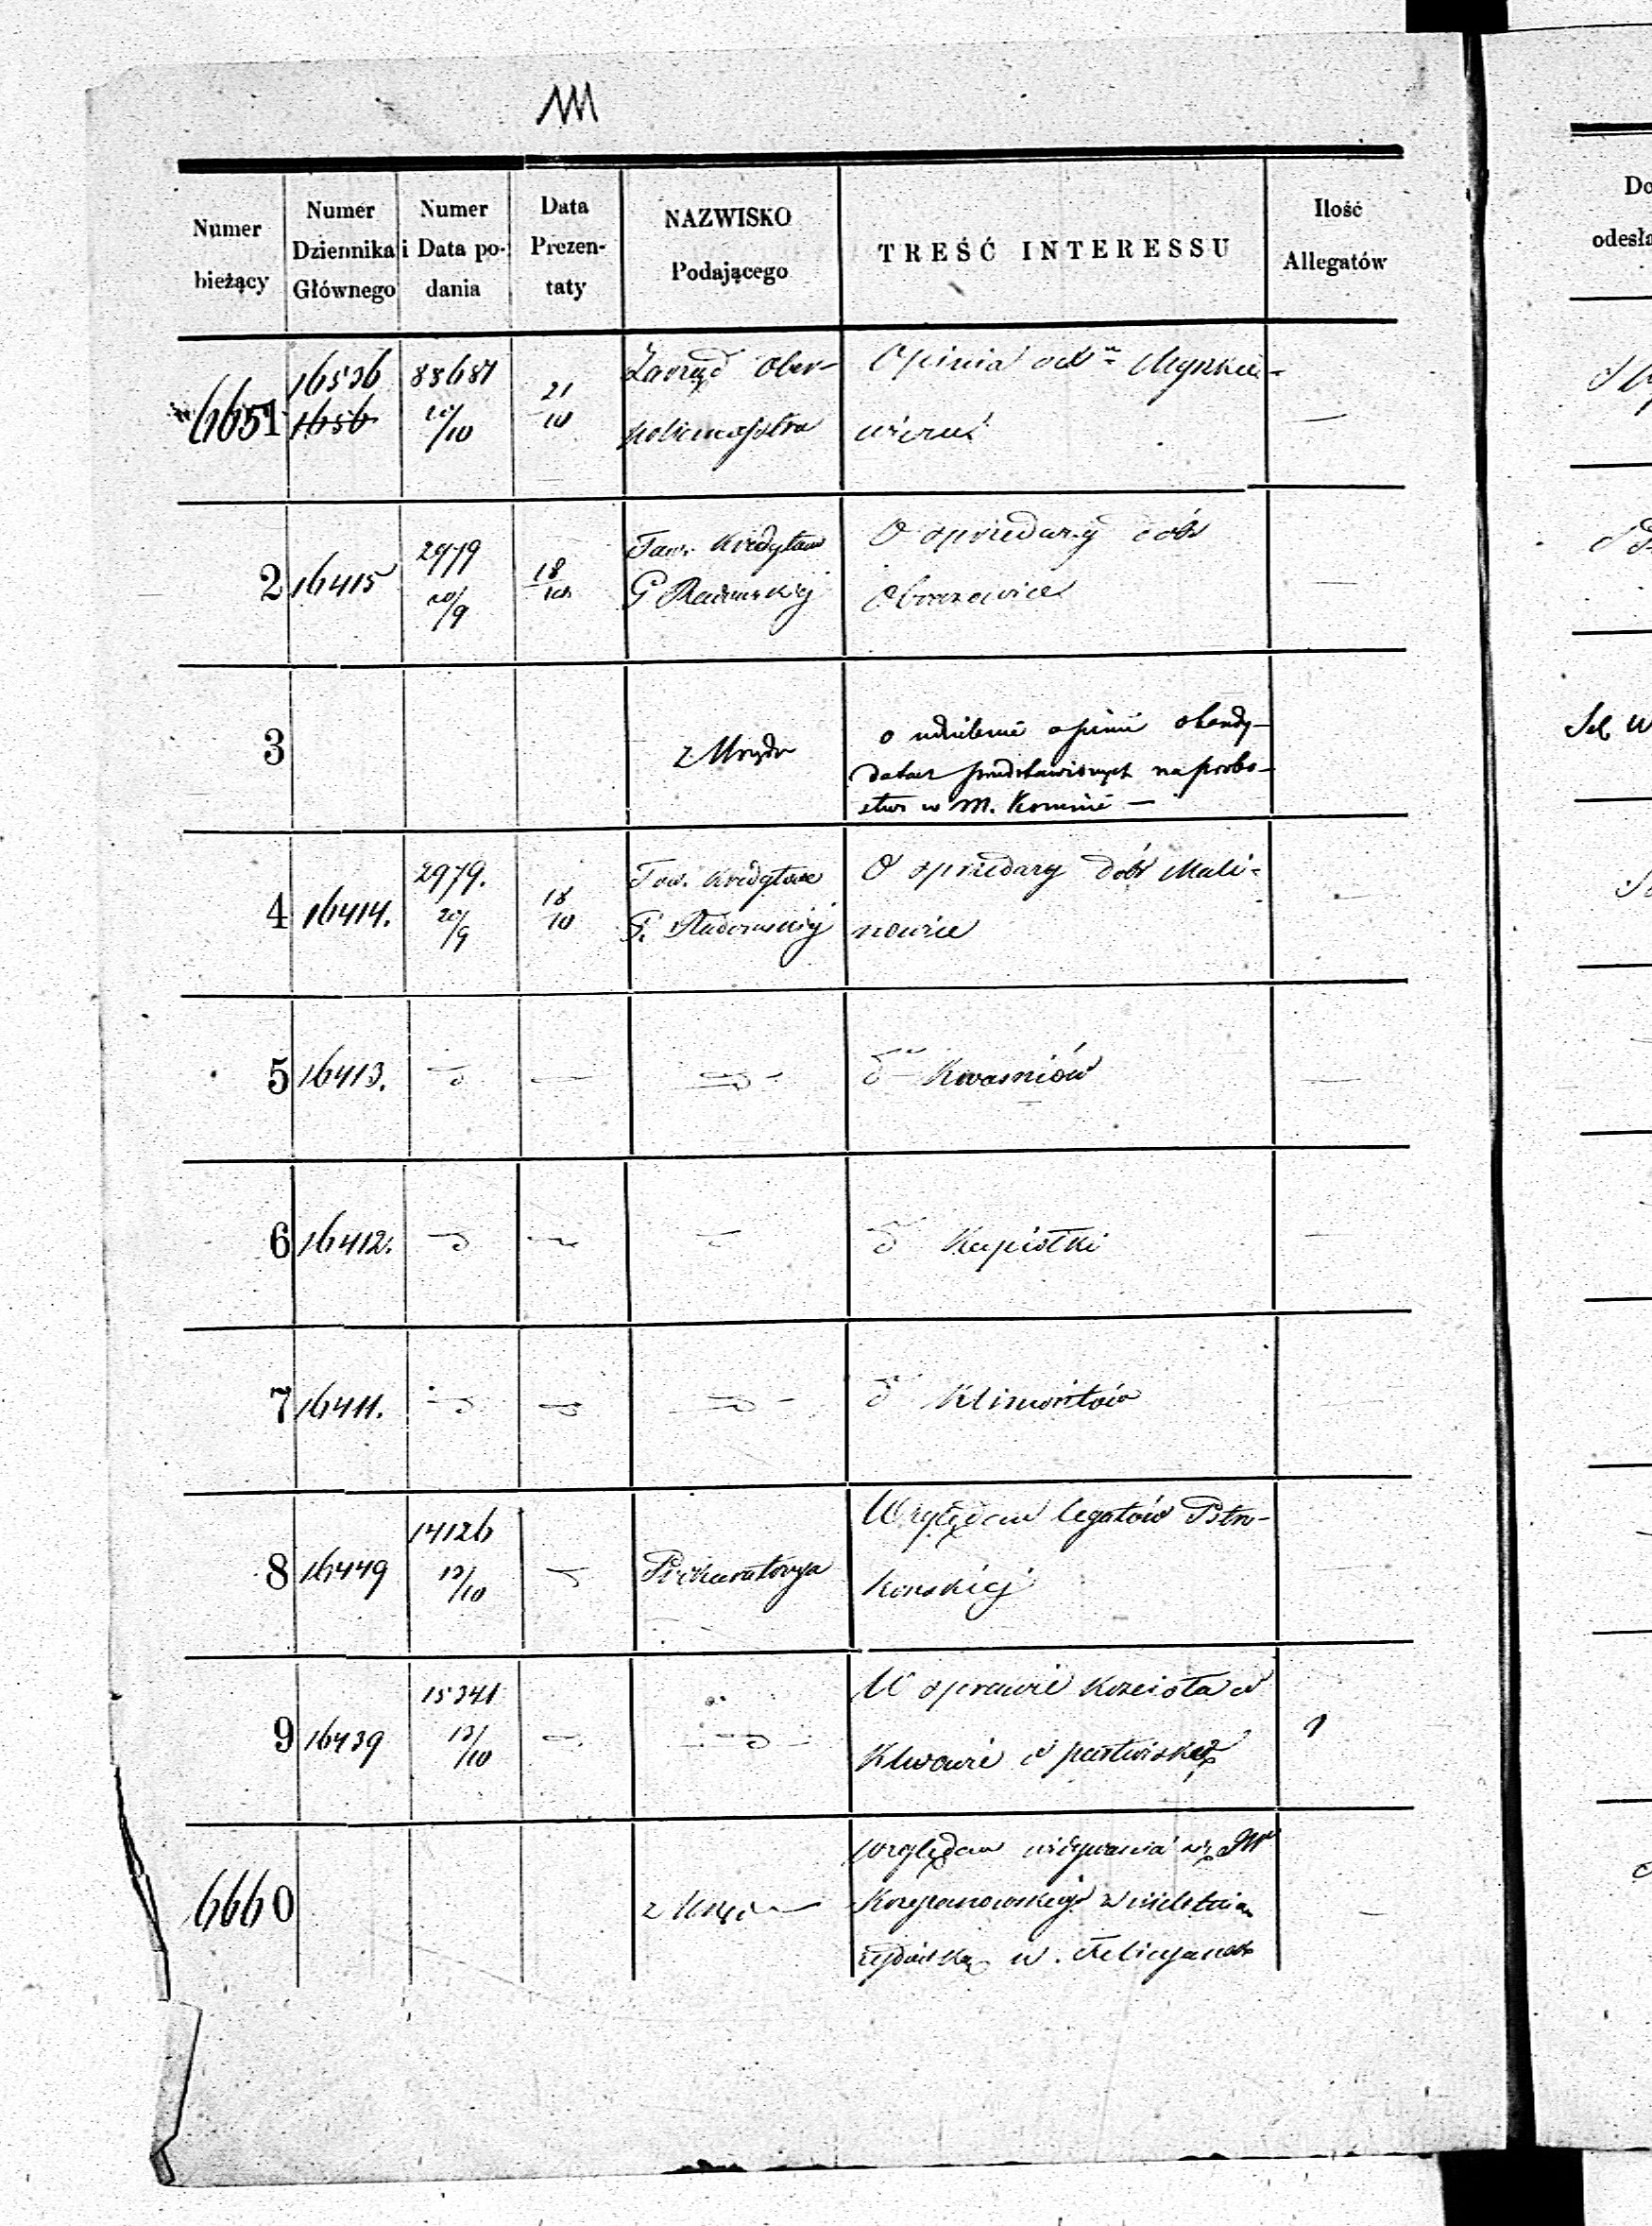 Numer bieżący
Numer Dziennika Głównego
Numer i Data podania
Data Prezentaty
NAZWISKO Podającego
TREŚĆ INTERESSU
Ilość Allegatów
6651
16536
1656
88681
20/10
21/10
Zarząd Ober-
policmajstra
Opinia o
—
2
16415
2979
20/9
18/10
Tow. Kredytow
G Radomskiej
O sprzedazy dóbr
—
3
z Urzędu
o udzielenie opinii o kandy-
datach przedstawionych na probo-
stwo w m. Koninie —
4
16414.
2979.
20/9
18/10
Tow. Kredytowe
G. Radomskiej
O sprzedazy dóbr Mali-
nowice
5
16413.
d
—
d
d° Kwasniów
—
6
16412.
d
d° Kupiołki
—
7
16411.
d
d
d
d° Klimontów
8
16449
14126
13/10
Prokuratorya
Względem legatów Pstro-
konskiej
9
16439
15341
13/10
d
W sprawie Kościoła w
Klwowie o pastwisko
1
6660
z Urzędu
względem
w. Felicyanek
—
Do
odesła